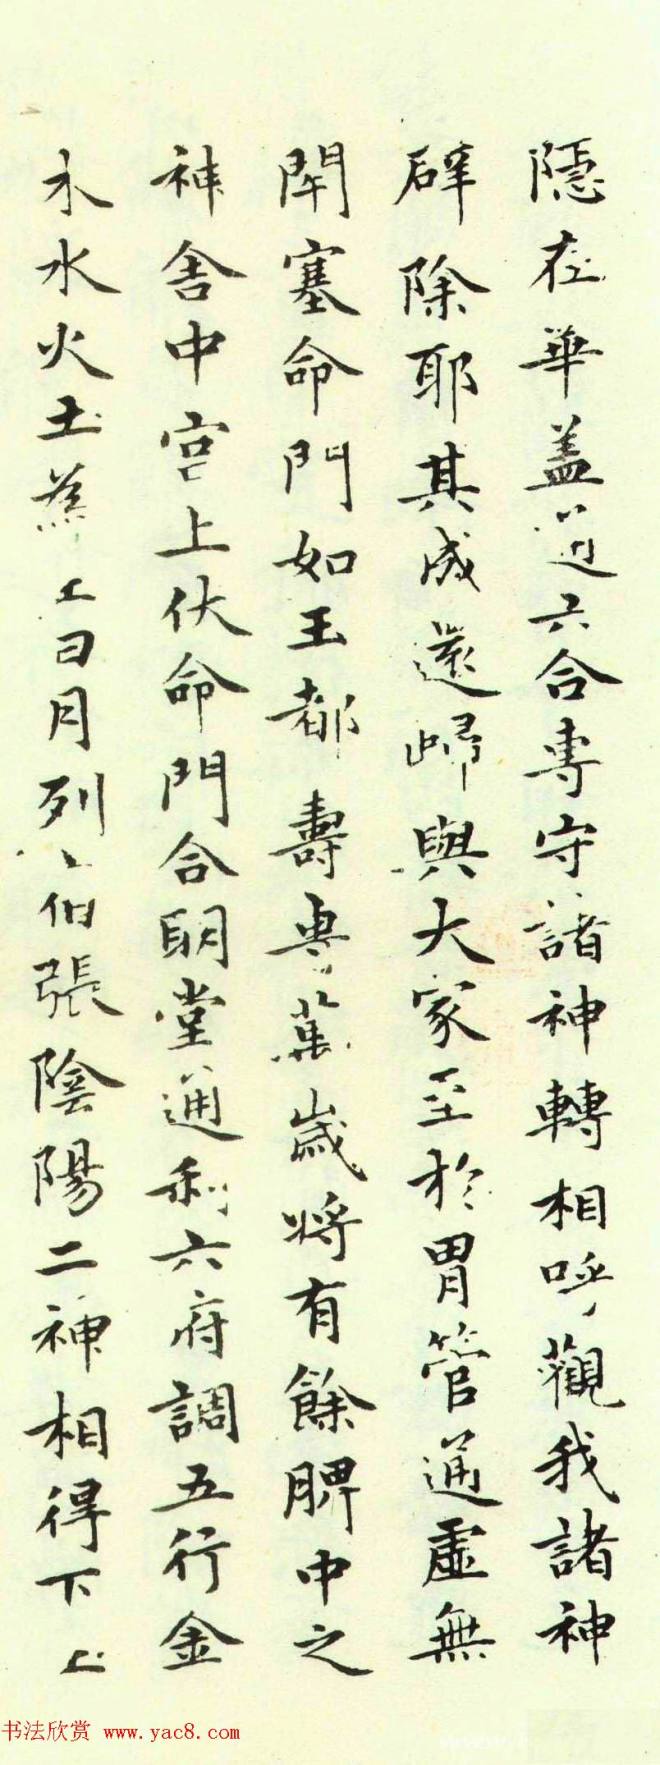 隱在華盖通六合專守諸神轉相呼觀我諸神
辟除耶其成還歸與大家至於胃管通虛無
閇塞命門如玉都壽專萬歲將有餘脾中之
神舍中宮上伏命門合明堂通利六府調五行金
木水火土為王日月列伯張陰陽二神相得下上
书法欣赏 www.yac8.com